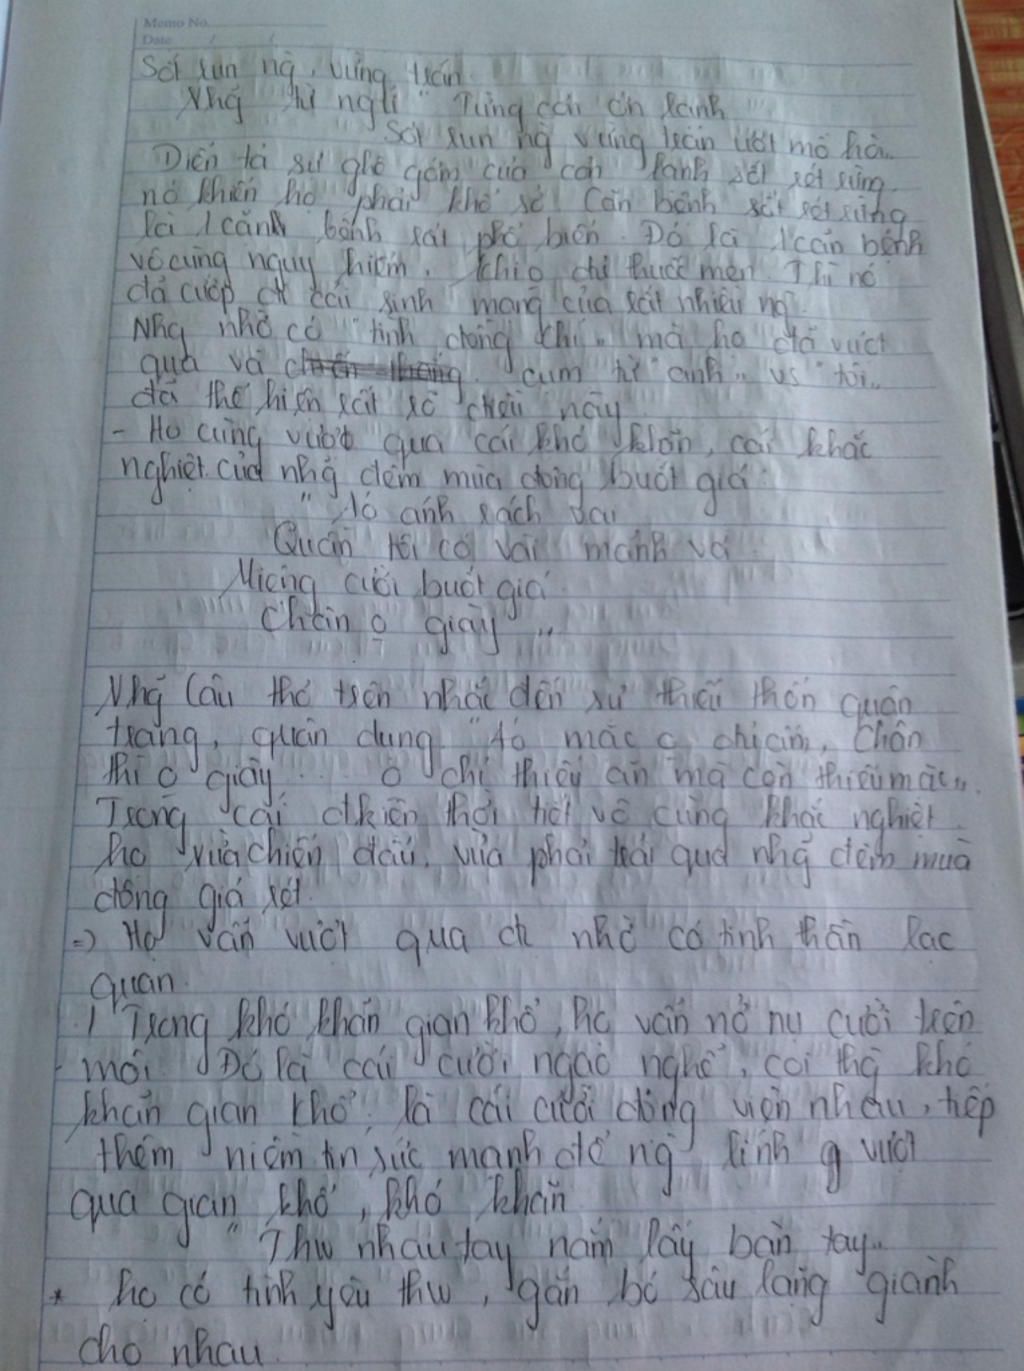 Memo No.
Date / /
Sốt run ng`, vừng trán.
Nhg~ từ ngữ " Từng cơn ớn lạnh
Sốt run ng` vừng trán ướt mồ hôi"
Diễn tả sự ghê gớm của cơn lạnh sốt rét rừng.
nó khiến họ phải khổ sở. Căn bệnh sốt rét rừng
là 1 cănh bệnh rất phổ biến. Đó là 1 căn bệnh
vô cùng nguy hiểm. khi o chỉ thuốc men. Thì nó
đã cướp đi cái sinh mạng của rất nhiều ng`.
Nhg nhờ có "tình đồng chí" mà họ đã vượt
qua và chiến thắng. cụm từ "anh" vs "tôi"
đã thể hiện rất rõ điều này
- Họ cùng vượt qua cái khó khăn, cái khắc
nghiệt của nhg~ đêm mùa đông buốt giá:
" Áo anh rách vai
Quần tôi có vài mảnh vá
Miệng cười buốt giá
Chân o giày "
Nhg~ câu thơ trên nhắc đến sự thiếu thốn quân
trang, quân dụng. "Áo mặc o chỉ ấm, Chân
thì o giày ... o chỉ thiếu ăn mà còn thiếu mặc".
Trong cái đkiện thời tiết vô cùng khắc nghiệt.
họ vừa chiến đấu, vừa phải trải qua nhg~ đêm mùa
đông giá rét.
=> Họ vẫn vượt qua đc nhờ có tinh thần lạc
quan.
! Trong khó khăn gian khổ, họ vẫn nở nụ cười trên
môi. Đó là cái cười ngạo nghễ, coi thg` khó
khăn gian khổ, là cái cười động viên nhau, tiếp
thêm niềm tin sức mạnh để ng` lính g vượt
qua gian khổ, khó khăn
" Thw nhau tay nắm lấy bàn tay"
* họ có tình yêu thw, gắn bó sâu lặng giành
cho nhau.